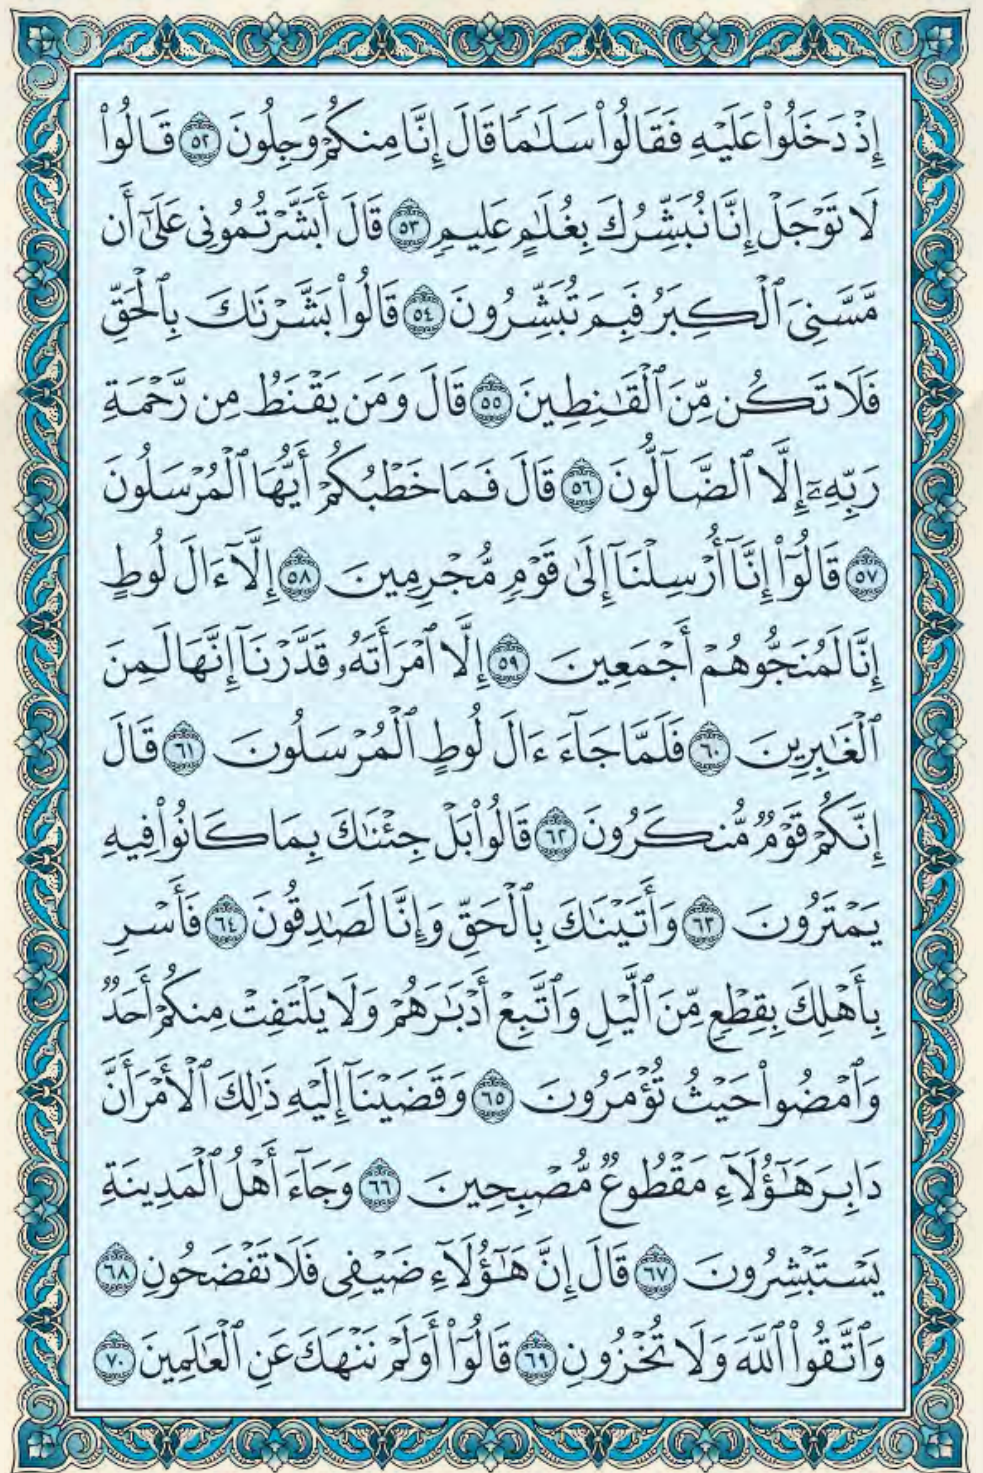 إِذْ دَخَلُوا۟ عَلَيْهِ فَقَالُوا۟ سَلَـٰمًا قَالَ إِنَّا مِنكُمْ وَجِلُونَ ٥٢ قَالُوا۟
لَا تَوْجَلْ إِنَّا نُبَشِّرُكَ بِغُلَـٰمٍ عَلِيمٍ ٥٣ قَالَ أَبَشَّرْتُمُونِى عَلَىٰٓ أَن
مَّسَّنِىَ ٱلْكِبَرُ فَبِمَ تُبَشِّرُونَ ٥٤ قَالُوا۟ بَشَّرْنَـٰكَ بِٱلْحَقِّ
فَلَا تَكُن مِّنَ ٱلْقَـٰنِطِينَ ٥٥ قَالَ وَمَن يَقْنَطُ مِن رَّحْمَةِ
رَبِّهِۦٓ إِلَّا ٱلضَّآلُّونَ ٥٦ قَالَ فَمَا خَطْبُكُمْ أَيُّهَا ٱلْمُرْسَلُونَ
٥٧ قَالُوٓا۟ إِنَّآ أُرْسِلْنَآ إِلَىٰ قَوْمٍ مُّجْرِمِينَ ٥٨ إِلَّآ ءَالَ لُوطٍ
إِنَّا لَمُنَجُّوهُمْ أَجْمَعِينَ ٥٩ إِلَّا ٱمْرَأَتَهُۥ قَدَّرْنَآ إِنَّهَا لَمِنَ
ٱلْغَـٰبِرِينَ ٦٠ فَلَمَّا جَآءَ ءَالَ لُوطٍ ٱلْمُرْسَلُونَ ٦١ قَالَ
إِنَّكُمْ قَوْمٌ مُّنكَرُونَ ٦٢ قَالُوا۟ بَلْ جِئْنَـٰكَ بِمَا كَانُوا۟ فِيهِ
يَمْتَرُونَ ٦٣ وَأَتَيْنَـٰكَ بِٱلْحَقِّ وَإِنَّا لَصَـٰدِقُونَ ٦٤ فَأَسْرِ
بِأَهْلِكَ بِقِطْعٍ مِّنَ ٱلَّيْلِ وَٱتَّبِعْ أَدْبَـٰرَهُمْ وَلَا يَلْتَفِتْ مِنكُمْ أَحَدٌ
وَٱمْضُوا۟ حَيْثُ تُؤْمَرُونَ ٦٥ وَقَضَيْنَآ إِلَيْهِ ذَٰلِكَ ٱلْأَمْرَ أَنَّ
دَابِرَ هَـٰٓؤُلَآءِ مَقْطُوعٌ مُّصْبِحِينَ ٦٦ وَجَآءَ أَهْلُ ٱلْمَدِينَةِ
يَسْتَبْشِرُونَ ٦٧ قَالَ إِنَّ هَـٰٓؤُلَآءِ ضَيْفِى فَلَا تَفْضَحُونِ ٦٨
وَٱتَّقُوا۟ ٱللَّهَ وَلَا تُخْزُونِ ٦٩ قَالُوٓا۟ أَوَلَمْ نَنْهَكَ عَنِ ٱلْعَـٰلَمِينَ ٧٠